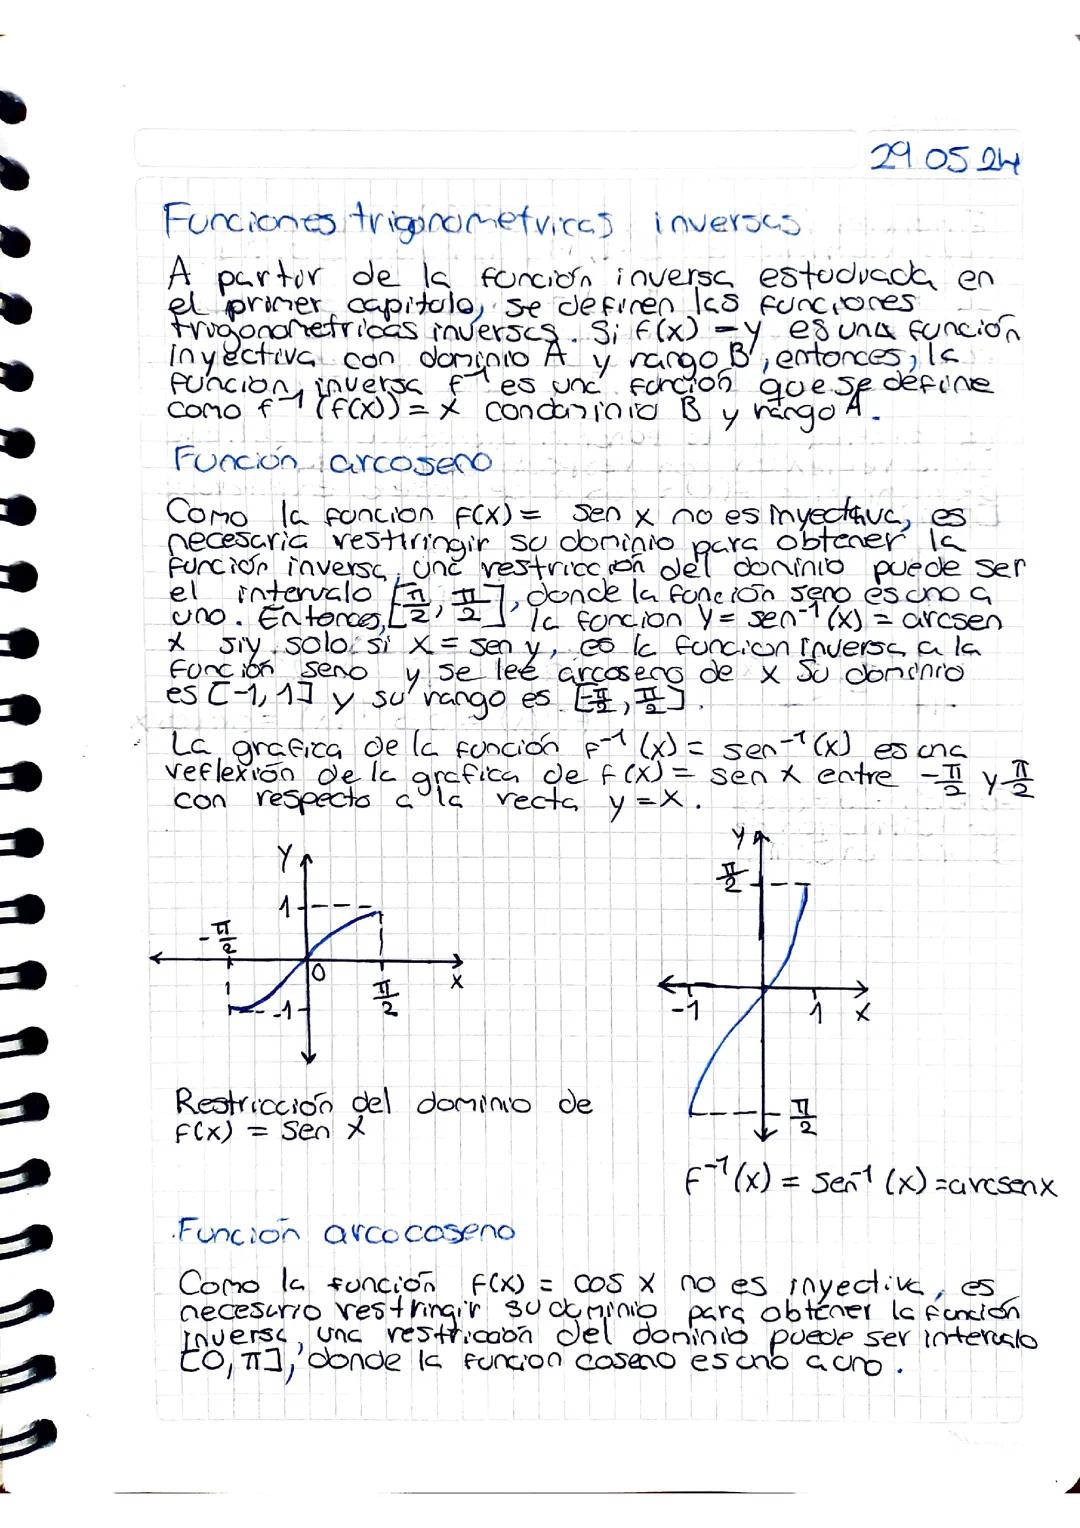 29 05 24
Funciones trigonometricas inversas
A partir de la función inversa estudiada en
el primer capitulo, se definen las funciones
trigonometricas inversas. Si f(x) = y es una función
inyectiva con dominio A y rango B, entonces, la
función inversa f⁻¹ es una función que se define
como f⁻¹ (f(x)) = x con dominio B y rango A.
Función arcoseno
Como la funcion f(x) = sen x no es inyectiva, es
necesaria restiringir su dominio para obtener la
función inversa, una restricción del dominio puede ser
el intervalo [π/2, π/2], donde la función seno es uno a
uno. Entonces, la funcion y = sen⁻¹(x) = arcsen
x si y solo si x = sen y, es la funcion inversa a la
función seno y se lee arcoseno de x Su dominio
es [-1, 1] y su rango es [-π/2, π/2].
La grafica de la función f⁻¹(x) = sen⁻¹(x) es una
reflexión de la grafica de f(x) = sen x entre -π/2 y π/2
con respecto a la recta y = x.
y
1
-π/2
0
π/2
x
-1
y
π/2
-1
1
x
-π/2
Restricción del dominio de
f(x) = Sen x
f⁻¹(x) = sen⁻¹(x) = arcsenx
Función arcocoseno
Como la función f(x) = cos x no es inyectiva, es
necesario restringir su dominio para obtener la función
inversa, una restricción del dominio puede ser intervalo
[0, π], donde la funcion coseno es uno a uno.